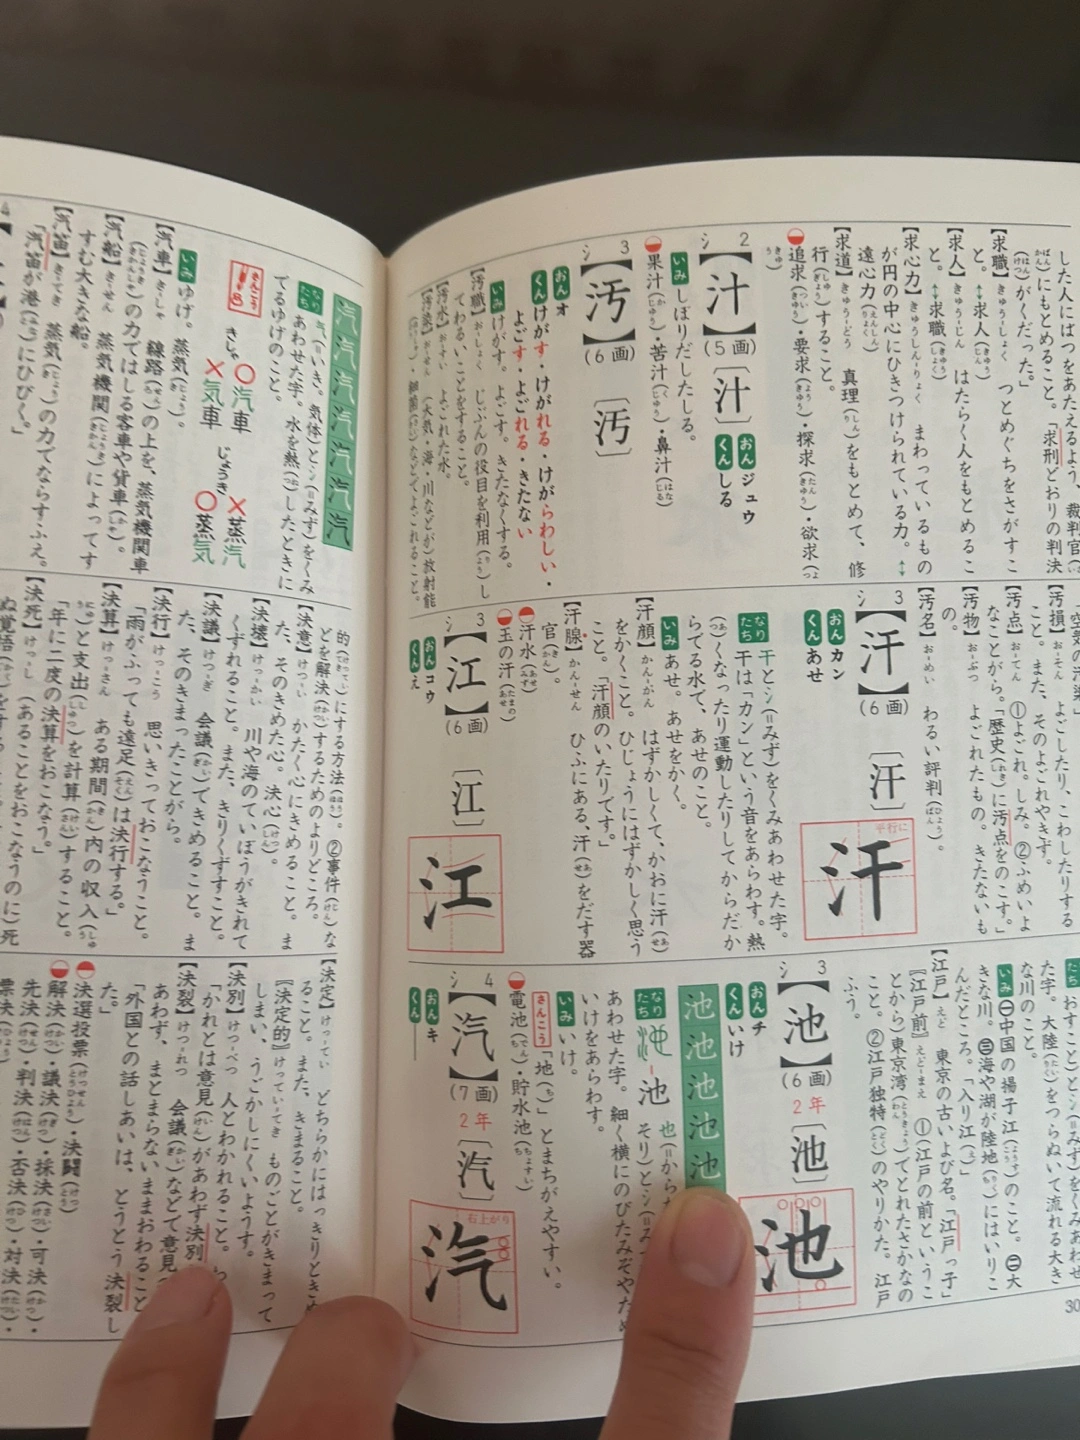 した人にばつをあたえるよう、裁判官
にもとめること。「求刑どおりの判決
がくだった。」
【求職】きゅうしょく つとめぐちをさがすこ
と。↕求人
【求人】きゅうじん はたらく人をもとめるこ
と。↕求職
【求心力】きゅうしんりょく まわっているもの
が円の中心にひきつけられている力。↕
遠心力
【求道】きゅうどう 真理をもとめて、修
行すること。
追求・要求・探求・欲求
2
シ
【汁】(5画)〔汁〕
おん ジュウ
くん しる
いみ しぼりだしたしる。
果汁・苦汁・鼻汁
3
シ
【汚】(6画)〔汚〕
おん オ
くん けがす・けがれる・けがらわしい・
よごす・よごれる・きたない
いみ けがす。よごす。きたなくする。
【汚職】おしょく じぶんの役目を利用し
てわるいことをすること。
【汚水】おすい よごれた水。
【汚染】おせん (大気・海・川などが)放射能
・細菌などでよごれること。
「空気の汚染」
【汚損】おそん よごしたり、こわしたりする
こと。また、そのよごれやきず。
【汚点】おてん ①よごれ。しみ。②ふめいよ
なことがら。「歴史に汚点をのこす。」
【汚物】おぶつ よごれたもの。きたないも
の。
【汚名】おめい わるい評判。
3
シ
【汗】(6画)〔汗〕
平行に
汗
おん カン
くん あせ
なりたち 干とシ(=みず)をくみあわせた字。
干は「カン」という音をあらわす。熱
くなったり運動したりしてからだか
らでる水で、あせのこと。
いみ あせ。あせをかく。
【汗顔】かんがん はずかしくて、かおに汗
をかくこと。ひじょうにはずかしく思う
こと。「汗顔のいたりです。」
【汗腺】かんせん ひふにある、汗をだす器
官。
汗水
玉の汗
3
シ
【江】(6画)〔江〕
江
おん コウ
くん え
たち
おすこと)とシ(=みず)をくみあわせ
た字。大陸をつらぬいて流れる大き
な川のこと。
いみ ㊀中国の揚子江のこと。㊁大
きな川。㊂海や湖が陸地にはいりこ
んだところ。「入り江」
【江戸】えど 東京の古いよび名。「江戸っ子」
『江戸前』えどまえ ①(江戸の前というこ
とから)東京湾でとれたさかなの
こと。②江戸独特のやりかた。江戸
ふう。
3
シ
【池】(6画)2年〔池〕
池
おん チ
くん いけ
池池池池池
なりたち
池
そり)とシ(=
あわせた字。細く横にのびたみぞやため
いけをあらわす。
いみ いけ。
さんこう 「地」とまちがえやすい。
電池・貯水池
4
シ
【汽】(7画)2年〔汽〕
右上がり
汽
おん キ
くん —
30
汽汽汽汽汽汽汽
なりたち 气(=いき。気体)とシ(=みず)をくみ
あわせた字。水を熱したときに
でるゆげのこと。
さんこう
きしゃ
○汽車
×気車
じょうき
×蒸汽
○蒸気
いみ ゆげ。蒸気。
【汽車】きしゃ 線路の上を、蒸気機関車
の力ではしる客車や貨車。
【汽船】きせん 蒸気機関によってす
すむ大きな船。
【汽笛】きてき 蒸気の力でならすふえ。
「汽笛が港にひびく。」
4
的にする方法。②事件な
どを解決するためのよりどころ。
【決意】けつい かたく心にきめること。ま
た、そのきめた心。決心。
【決壊】けっかい 川や海のていぼうがきれて
くずれること。また、きりくずすこと。
【決議】けつぎ 会議できめること。ま
た、そのきまったことがら。
【決行】けっこう 思いきっておこなうこと。
「雨がふっても遠足は決行する。」
【決算】けっさん ある期間内の収入
と支出を計算すること。
「年に二度の決算をおこなう。」
【決死】けっし (あることをおこなうのに)死
ぬ覚悟
【決定】けってい どちらかにはっきりときめ
ること。また、きまること。
『決定的』けっていてき ものごとがきまって
しまい、うごかしにくいようす。
【決別】けつべつ 人とわかれること。
「かれとは意見があわず決別
【決裂】けつれつ 会議などで意見
あわず、まとまらないままおわること
「外国との話しあいは、とうとう決裂し
た。」
決選投票・決闘
解決・議決・採決・可決・
先決・判決・否決・対決・
票決